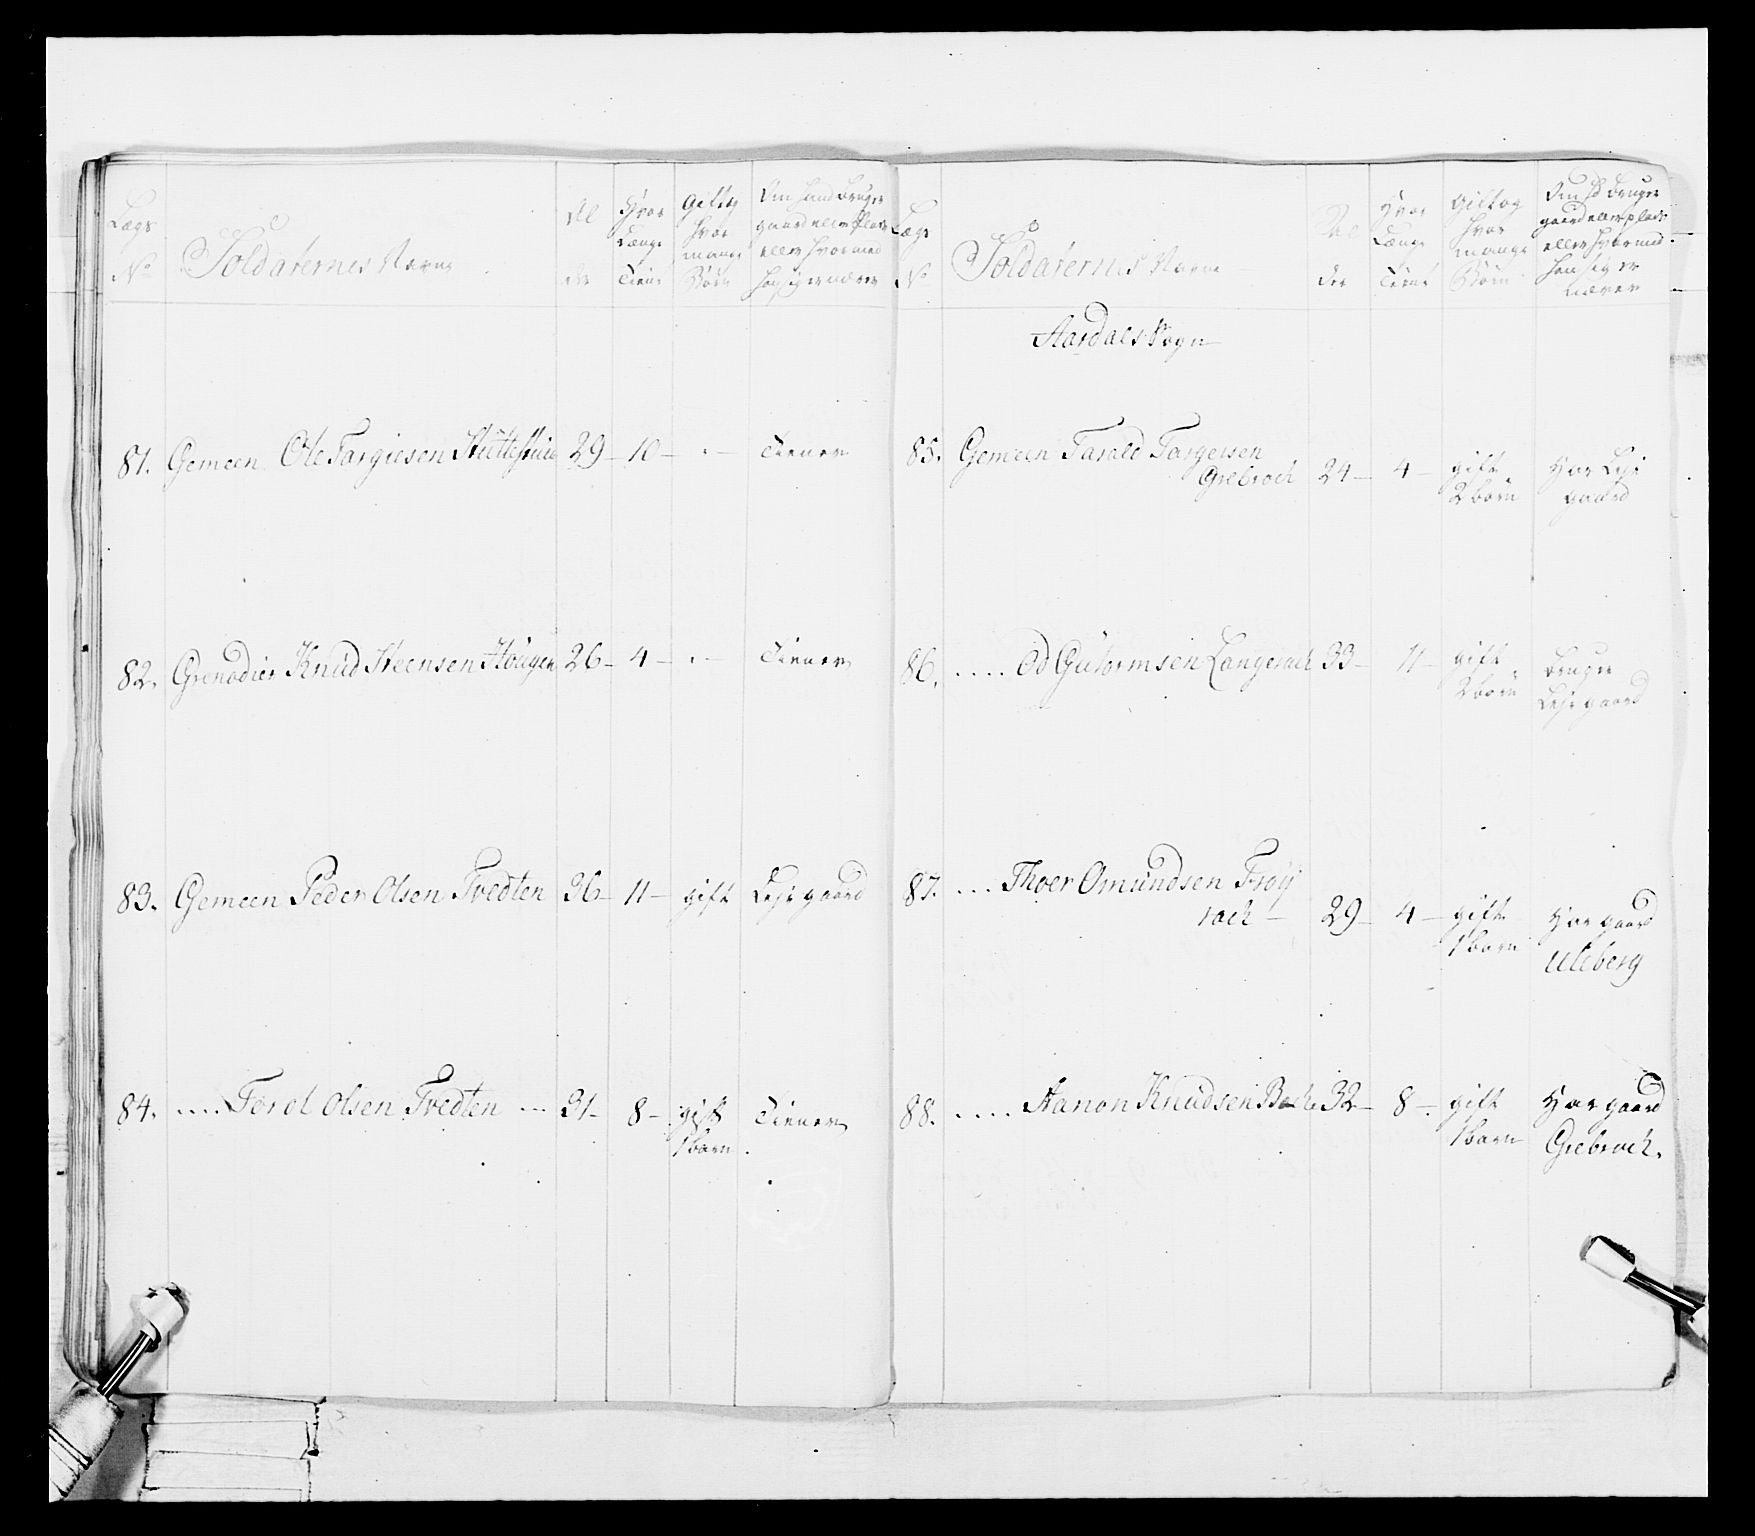 Lægs No
Soldaternes Navne
Al der
Hvor Længe Tient
Gift og hvor mange Børn
Om hand bruger gaard eller Plads eller hvormed han sig ernærer
81. Gemeen Ole Targiesen 29 – 10 – · – Tiener
82. Grenadier Knud Steensen Hougen 26 – 4 – · – Tiener
83. Gemeen Peder Olsen Tvedten 36 – 11 – gift Leje gaard
84. .... Torel Olsen Tvedten ... 31 – 8 – gift Tiener
1 barn
Lægs No
Soldaternes Navne
Al der
Hvor Længe Tient
Gift og hvor mange Børn
Om hd bruger gaard eller plads eller hvormed han sig er nærer
Aardals Sogn
85. Gemeen Tarald Targersen
Grebroch 24 – 4 – gift Har Leje
2 børn gaard
86. .... Od Gutormsen Langerach 33 – 11 – gift bruger
2 børn Leje gaard
87. ... Thoer Omundsen Frøy
rach – 29 – 4 – gift Har gaard
1 barn Uleberg
88. .... Aanon Knudsen 32 – 8 – gift Har gaard
1 barn Grebroch.